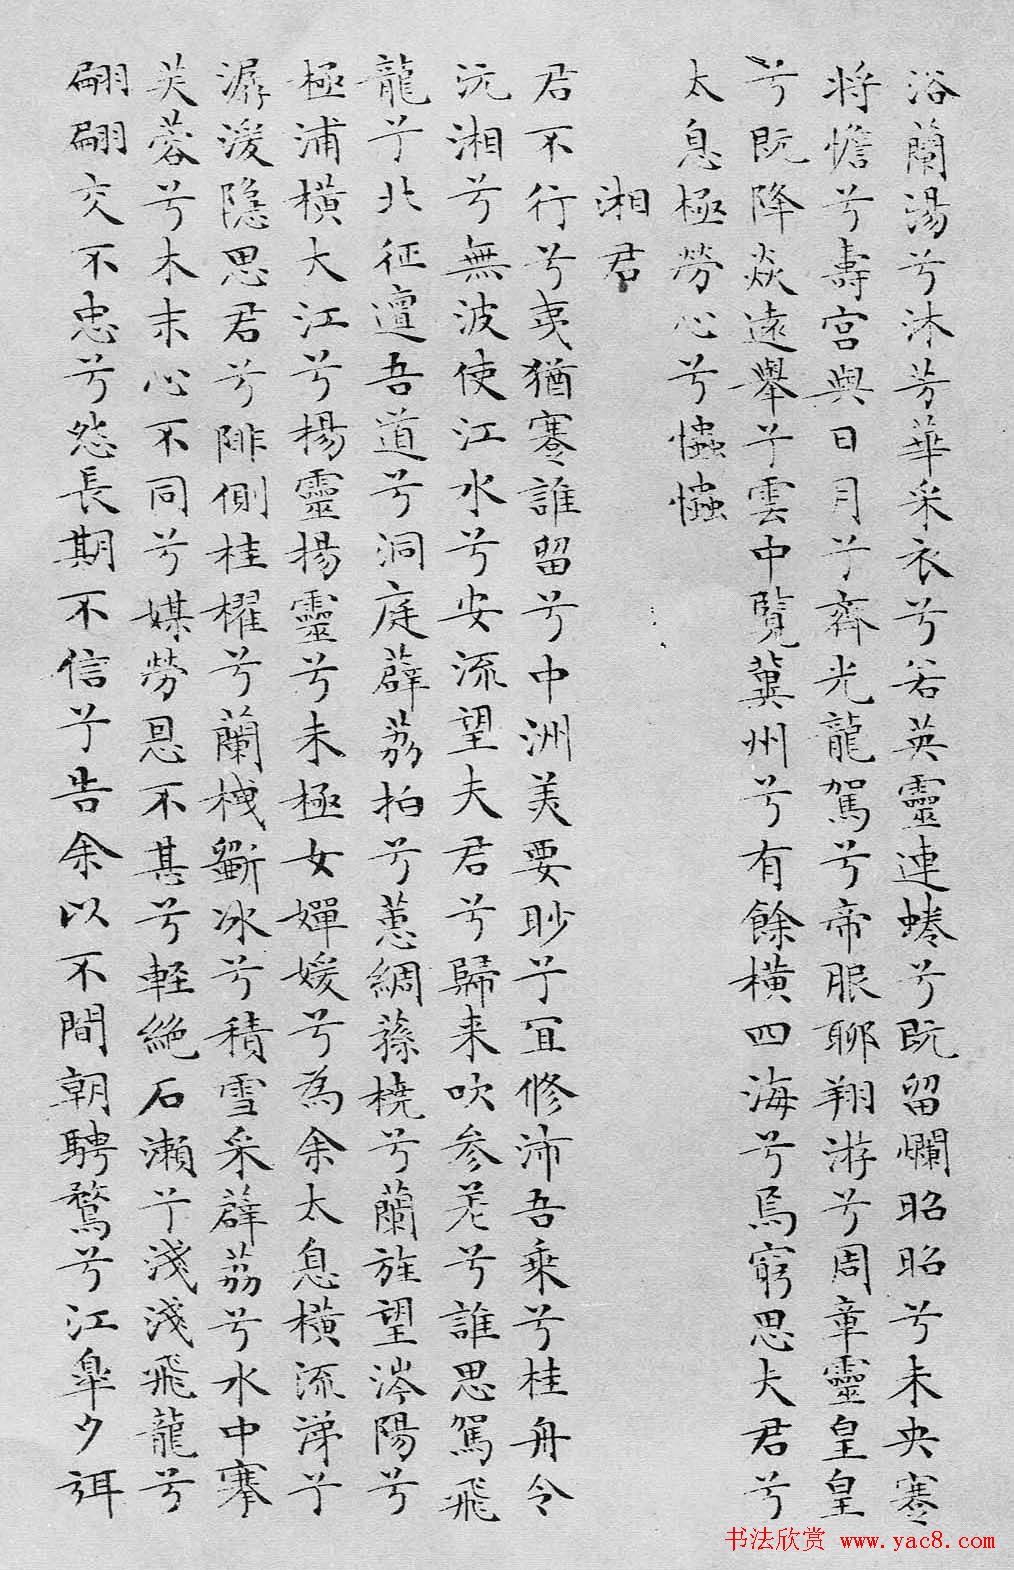 浴蘭湯兮沐芳華采衣兮若英靈連蜷兮既留爛昭昭兮未央蹇
将憺兮壽宫與日月兮齊光龍駕兮帝服聊翔游兮周章靈皇皇
兮既降猋遠舉兮雲中覧冀州兮有餘横四海兮焉窮思夫君兮
太息極勞心兮爞爞
湘君
君不行兮夷猶蹇誰留兮中洲美要眇兮宜修沛吾乗兮桂舟令
沅湘兮無波使江水兮安流望夫君兮歸来吹参差兮誰思駕飛
龍兮北征邅吾道兮洞庭薜荔拍兮蕙綢蓀橈兮蘭旌望涔陽兮
極浦横大江兮揚靈揚靈兮未極女嬋媛兮為余太息横流涕兮
潺湲隱思君兮陫側桂櫂兮蘭栧斵冰兮積雪采薜荔兮水中搴
芙蓉兮木末心不同兮媒勞恩不甚兮軽絶石瀬兮淺淺飛龍兮
翩翩交不忠兮怨長期不信兮告余以不間朝騁騖兮江皐夕弭
书法欣赏 www.yac8.com